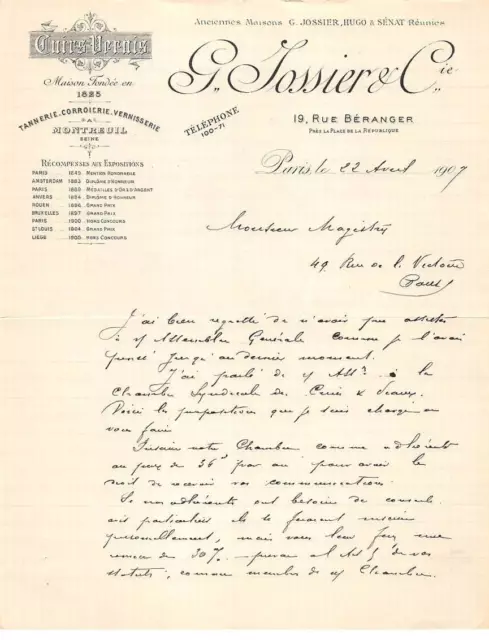 Anciennes Maisons G. JOSSIER, HUGO & SÉNAT Réunies
Cuirs Vernis
Maison Fondée en
1825
TANNERIE-CORROIERIE-VERNISSERIE
A
MONTREUIL
SEINE
G. Jossier & Cie
TÉLÉPHONE
100-71
19, RUE BÉRANGER
PRÈS LA PLACE DE LA RÉPUBLIQUE
RÉCOMPENSES AUX EXPOSITIONS
PARIS 1845 MENTION HONORABLE
AMSTERDAM 1883 DIPLÔME D'HONNEUR
PARIS 1889 MÉDAILLES D'OR & D'ARGENT
ANVERS 1894 DIPLÔME D'HONNEUR
ROUEN 1896 GRAND PRIX
BRUXELLES 1897 GRAND PRIX
PARIS 1900 HORS CONCOURS
ST LOUIS 1904 GRAND PRIX
LIÈGE 1905 HORS CONCOURS
Paris, le 22 Avril 1907
Monsieur Magistry
49 Rue de la Victoire
Paris
J'ai bien regretté de n'avoir pu assister
à Assemblée Générale comme je l'avais
pensé jusqu'au dernier moment.
J'ai parlé de à la
Chambre Syndicale des Cuirs & Veaux.
Voici la proposition que je suis chargé de
vous faire
Inscrire notre Chambre comme adhérente
au prix de par an pour avoir le
droit de recevoir vos communications.
Si nos adhérents ont besoin de conseils
particuliers ils se feront inscrire
personnellement, mais vous leur ferez une
remise de 30% de vos
statuts, comme membre de Chambre.